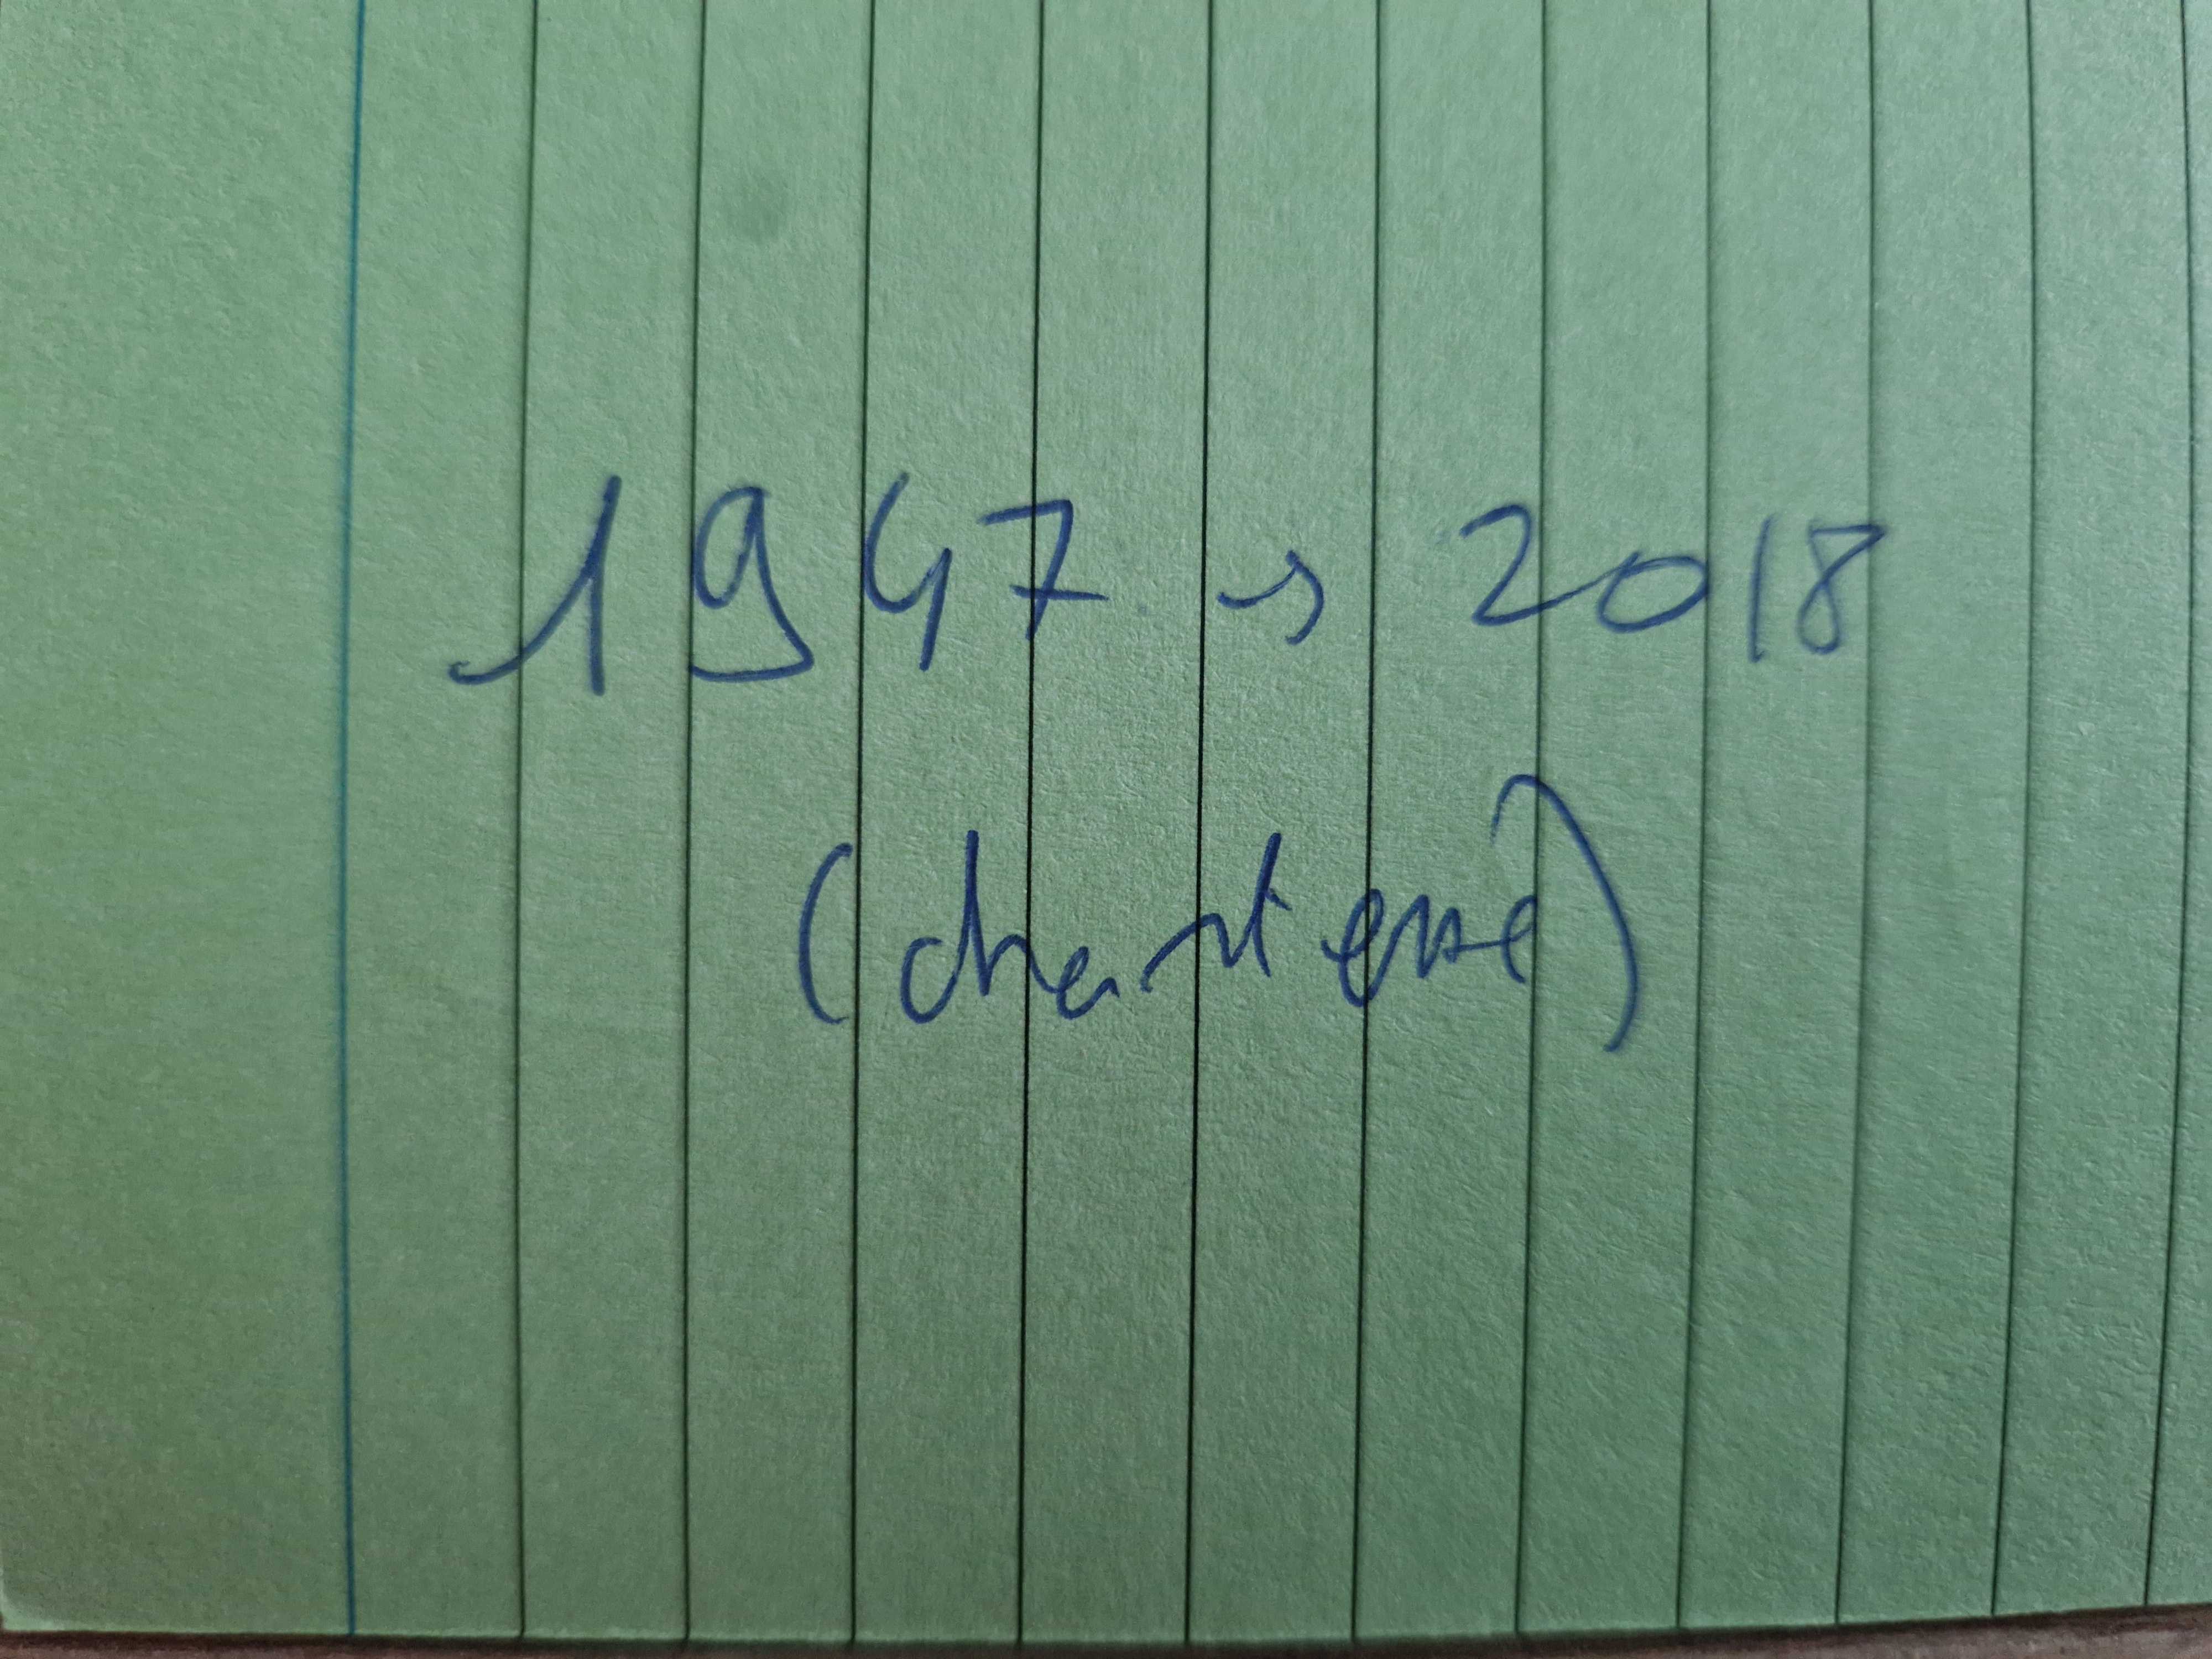 1947 → 2018
(chanteuse)